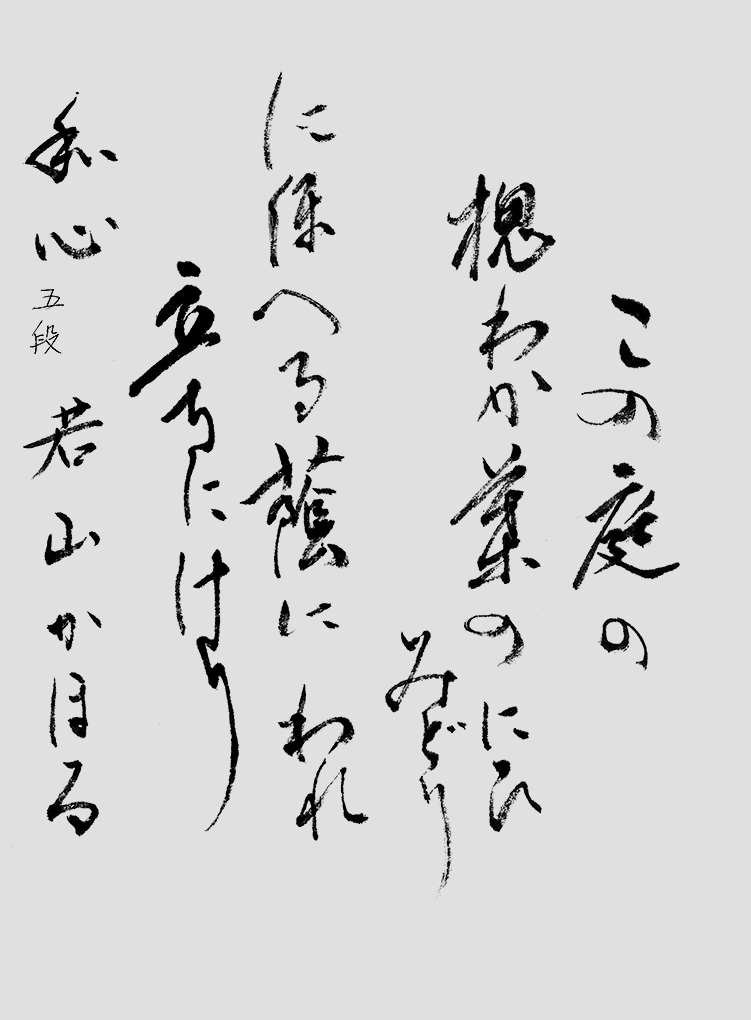 この庭の
槐わか葉のにひ
みどり
に保へる蔭にわれ
立ちにけり
和心 五段 若山かほる